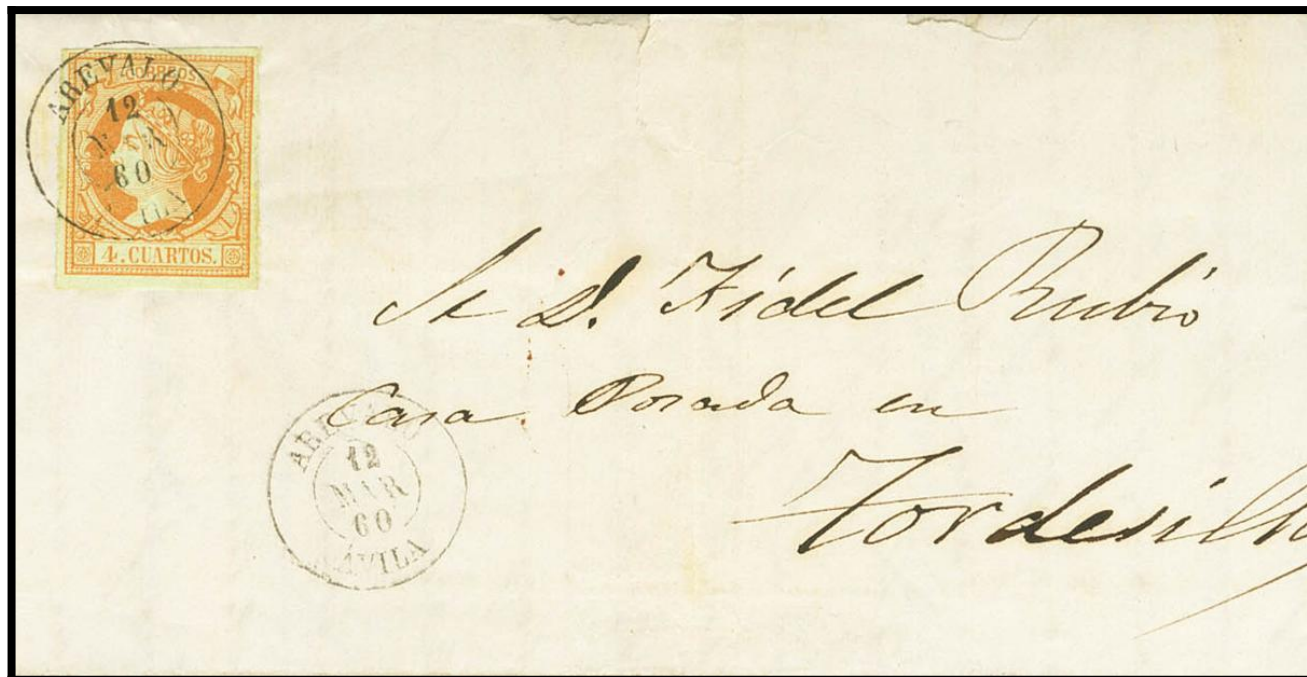 CORREOS
AREVALO
12
MAR
60
4. CUARTOS.
Sr D. Fidel Rubio
Casa Posada en
Tordesillas
AREVALO
12
MAR
60
ÁVILA